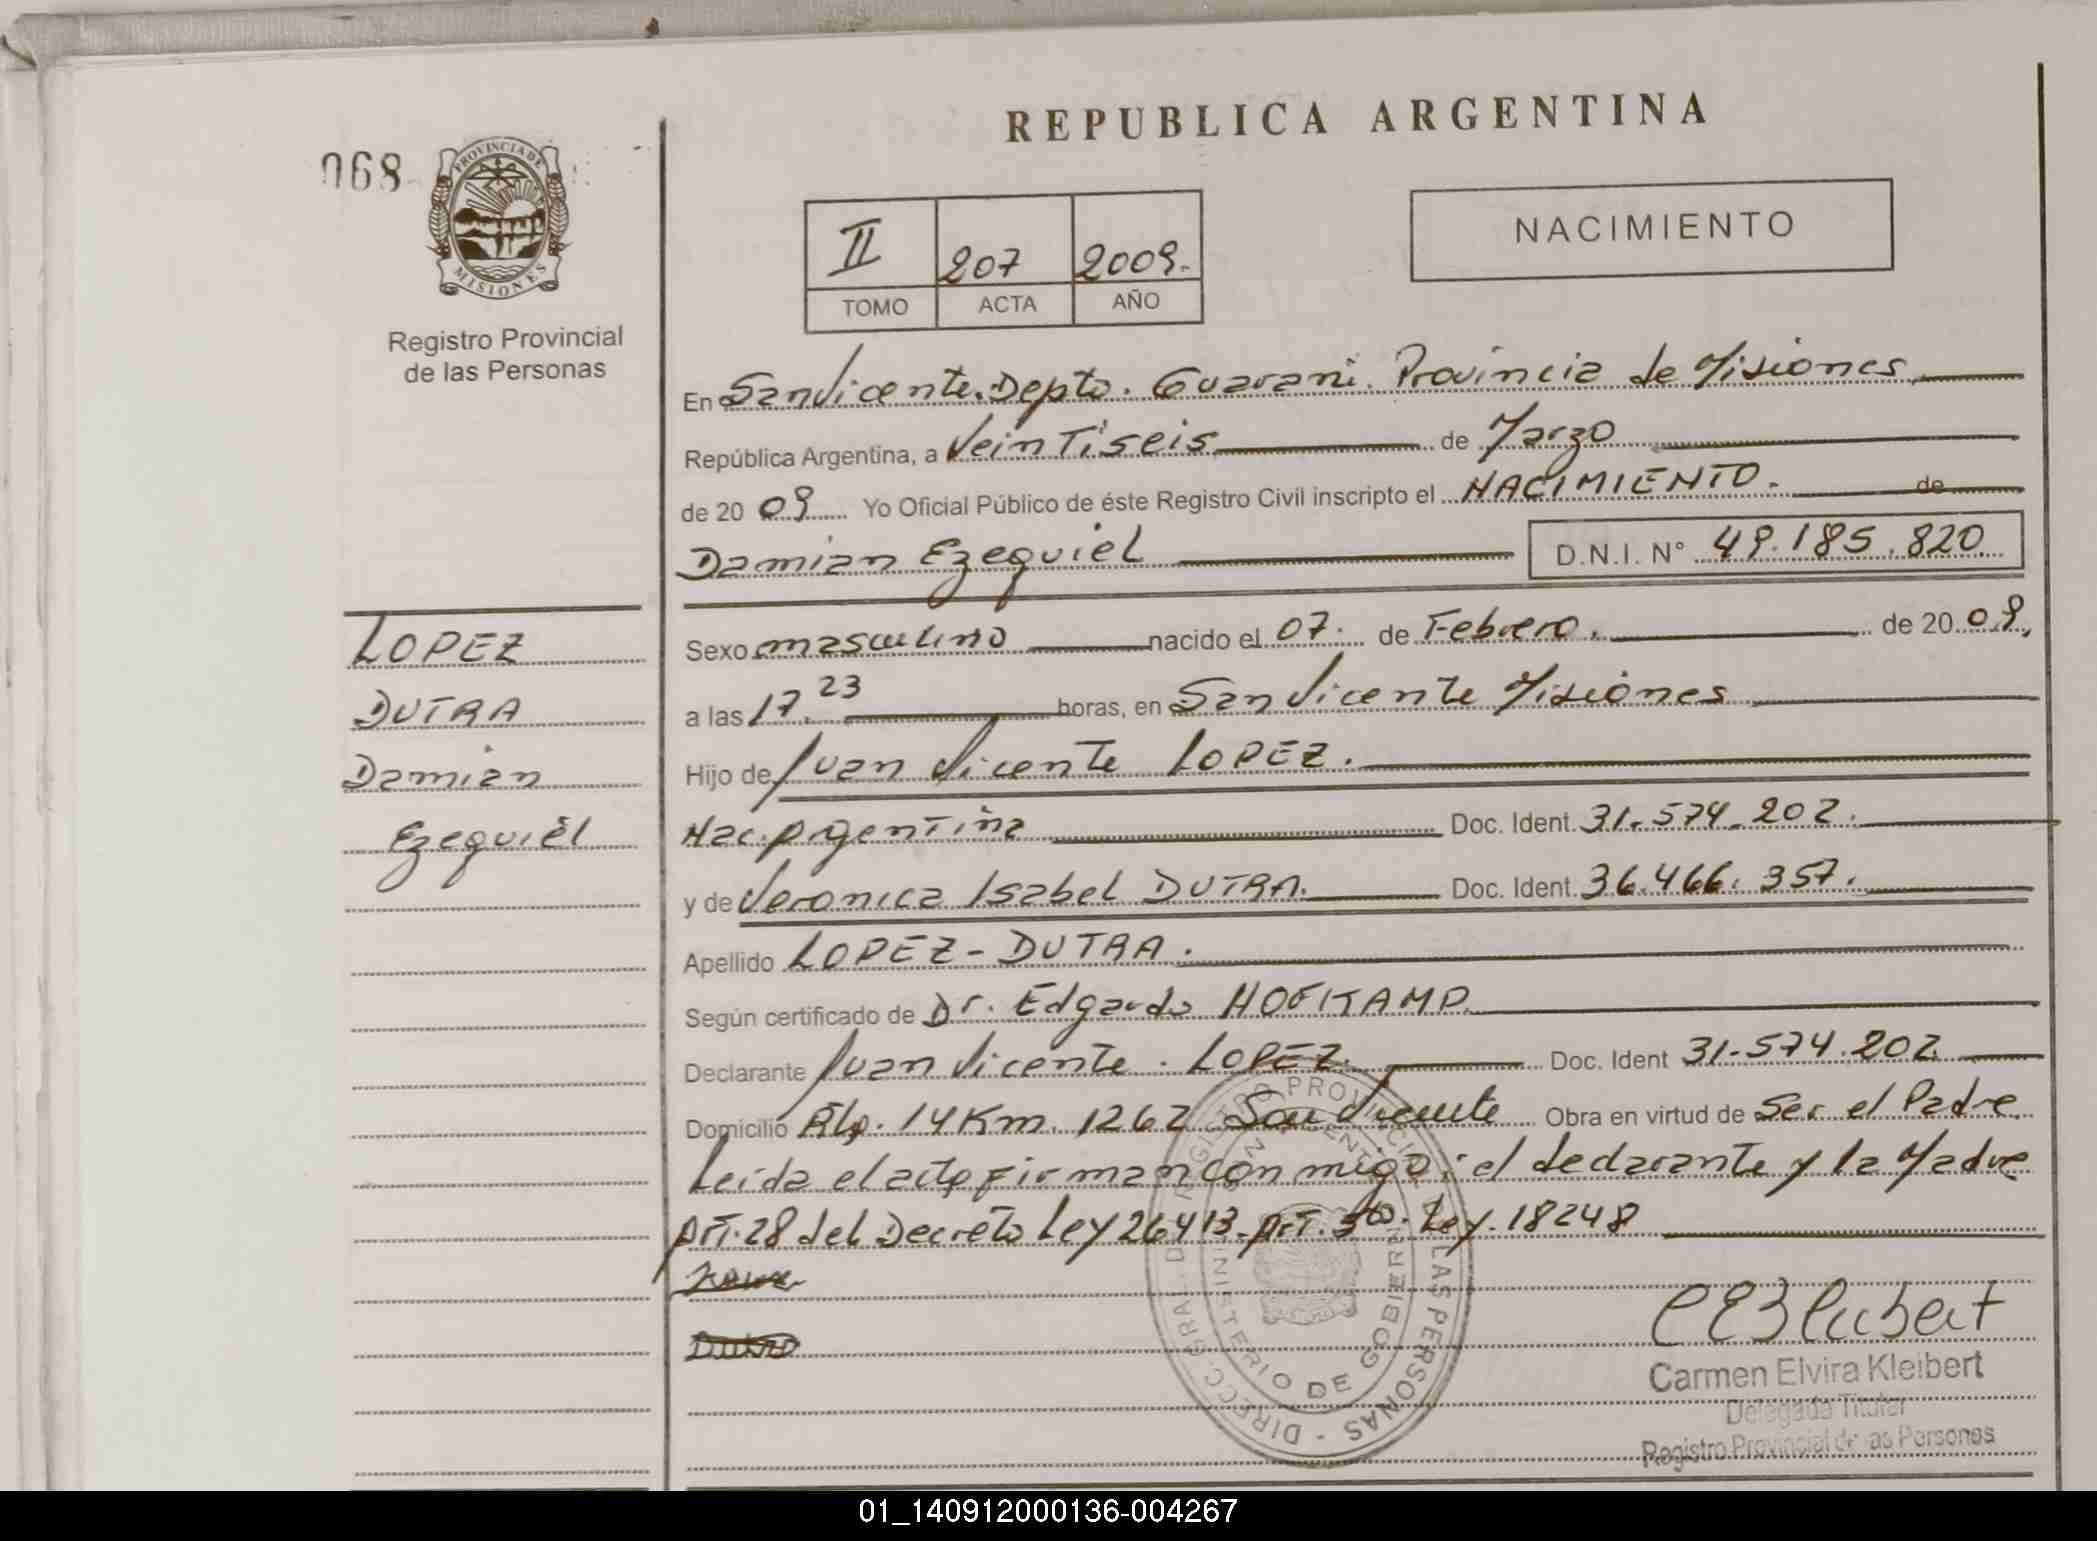 REPUBLICA ARGENTINA
068
PROVINCIA DE
MISIONES
Registro Provincial
de las Personas
II 207 2009.
TOMO ACTA AÑO
NACIMIENTO
En San Vicente. Depto. Guarani. Provincia de Misiones
República Argentina, a VeinTiseis de Marzo
de 2009 Yo Oficial Público de éste Registro Civil inscripto el NACIMIENTO. de
Damian Ezequiel D.N.I. N° 49.185.820
LOPEZ
DUTRA
Damian
Ezequiel
Sexo masculino nacido el 07. de Febrero. de 2009,
a las 17.23 horas, en San Vicente Misiones
Hijo de Juan Vicente LOPEZ.
Nac. Argentina Doc. Ident. 31.574.202.
y de Veronica Isabel DUTRA. Doc. Ident. 36.466.357.
Apellido LOPEZ-DUTRA.
Según certificado de Dr. Edgardo HOFKAMP.
Declarante Juan Vicente. LOPEZ. Doc. Ident 31-574.202.
Domicilio 14 Km. 1262 San Vicente Obra en virtud de Ser el Padre
Leida el acta firman conmigo: el declarante y la Madre
Art. 28 del Decreto Ley 26413. Art. 5to. Ley. 18248
Dutra
DIRECC. GRAL. DEL REGISTRO PROVINCIAL DE LAS PERSONAS
MINISTERIO DE GOBIERNO
Carmen Elvira Kleibert
Delegada Titular
Registro Provincial de las Personas
01_140912000136-004267